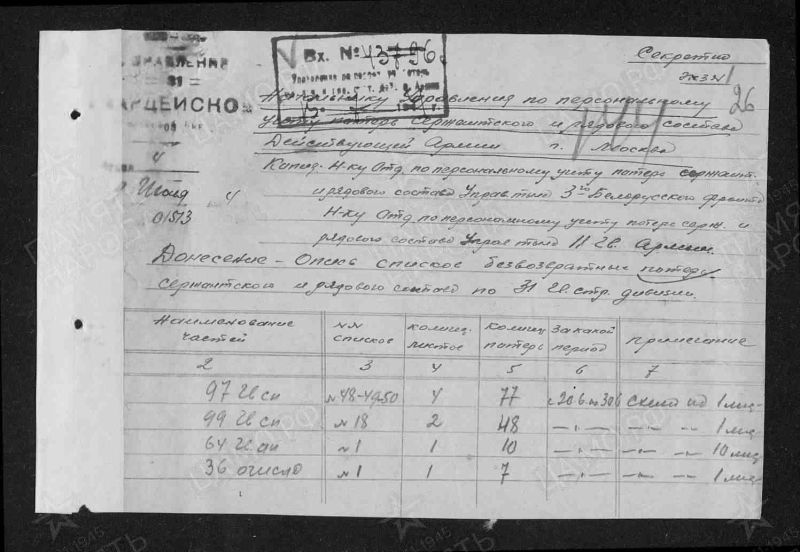 УПРАВЛЕНИЕ
31
ГВАРДЕЙСКОЙ
4
Июля 4
01513
Вх. № 43796
Секретно
экз N 1
26
Начальнику Управления по персональному
учету потерь сержантского и рядового состава
Действующей Армии г. Москва
Копия: Н-ку Отд. по персональному учету потерь сержант.
и рядового состава Управ тыла 3го Белорусского фронта
Н-ку Отд по персональному учету потерь серж. и
рядового состава Управ тыла 11 гв. Армии.
Донесение - Опись списков безвозвратных потерь
сержантского и рядового состава по 31 гв. стр. дивизии.
Наименование частей
NN списков
колич. листов
колич потерь
За какой период
примечание
2 3 4 5 6 7
97 гв сп №48-49-50 4 77 с 20 6 по 30 6 1 лис
99 гв сп №18 2 48 -"- -"- -"- 1 лис
64 гв ап №1 1 10 -"- -"- -"- 10 лис
36 №1 1 7 -"- -"- -"- 1 лис